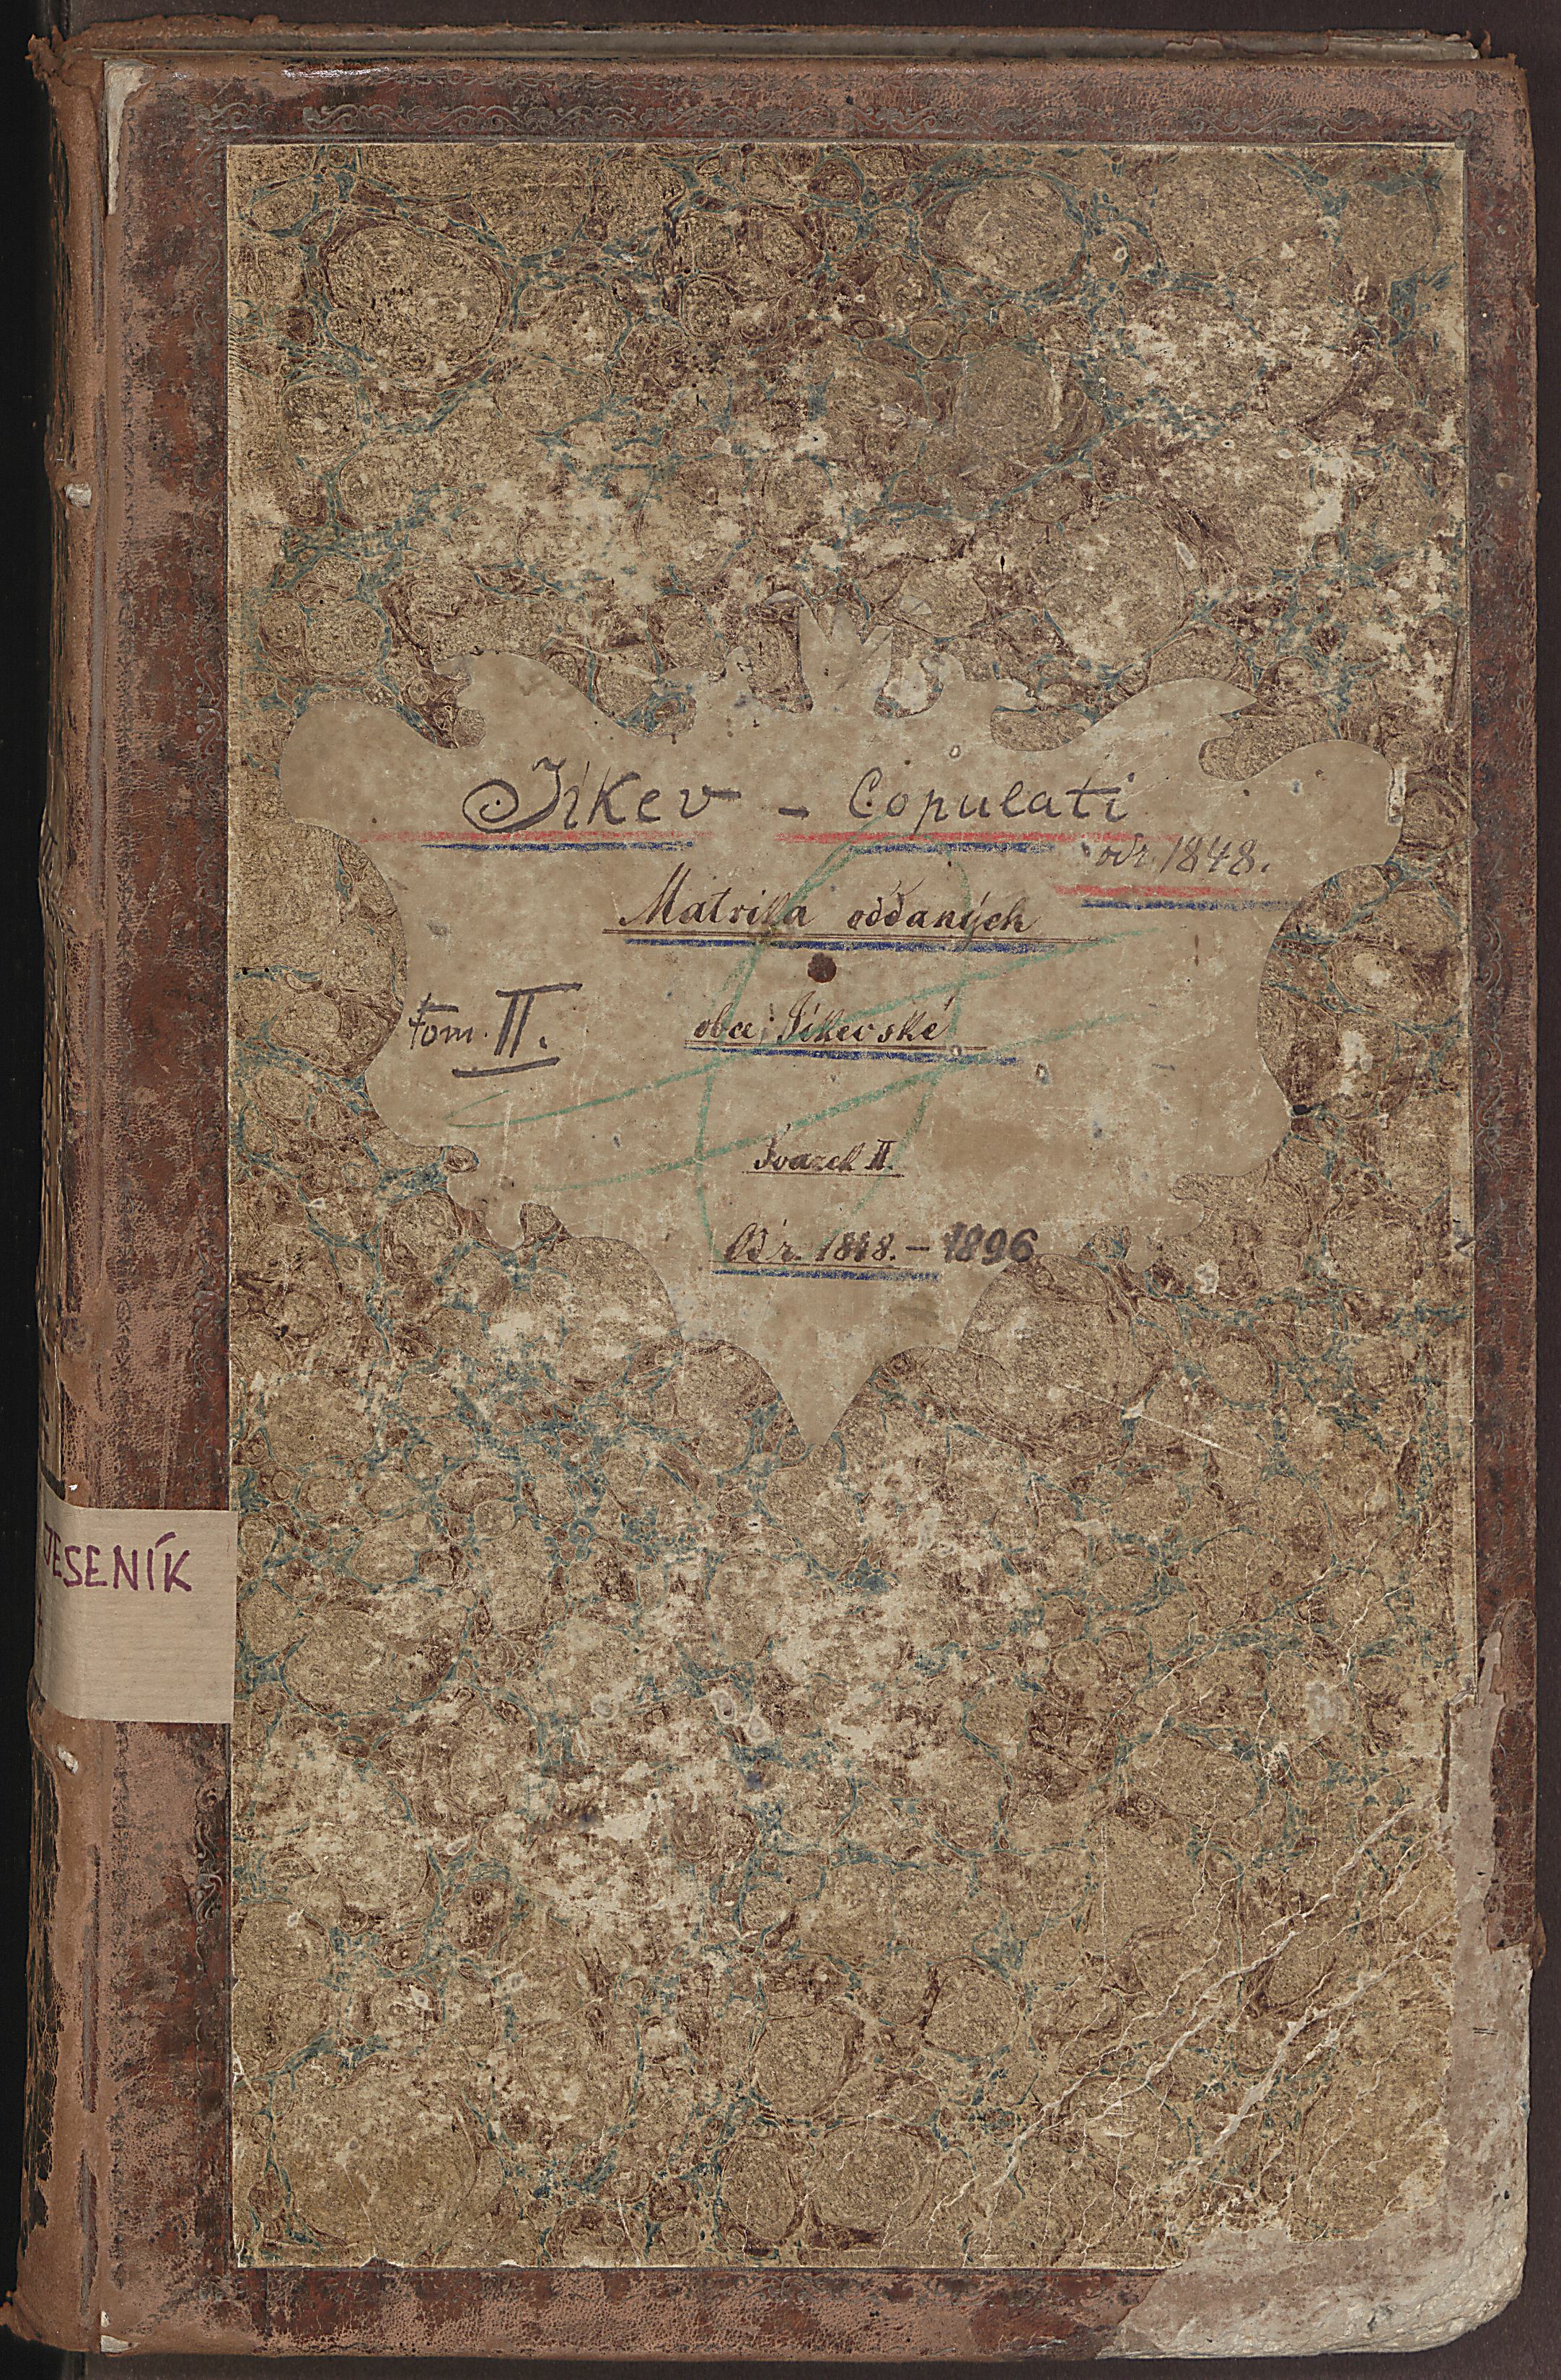 Jíkev - Copulati
od r. 1848.
Matrika oddaných
tom. II.
obce Jíkevské
Svazek II.
Od r. 1848. - 1896
JESENÍK